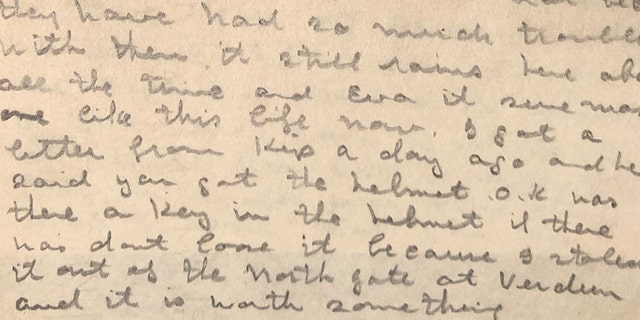 they have had so much trouble
with them it still rains here
all the time and Eva it sure
one like this life now. I got a
letter from Kip a day ago and he
said you got the helmet O.K was
there a key in the helmet if there
was dont loose it because I stolen
it out of the North gate at Verdun
and it is worth something